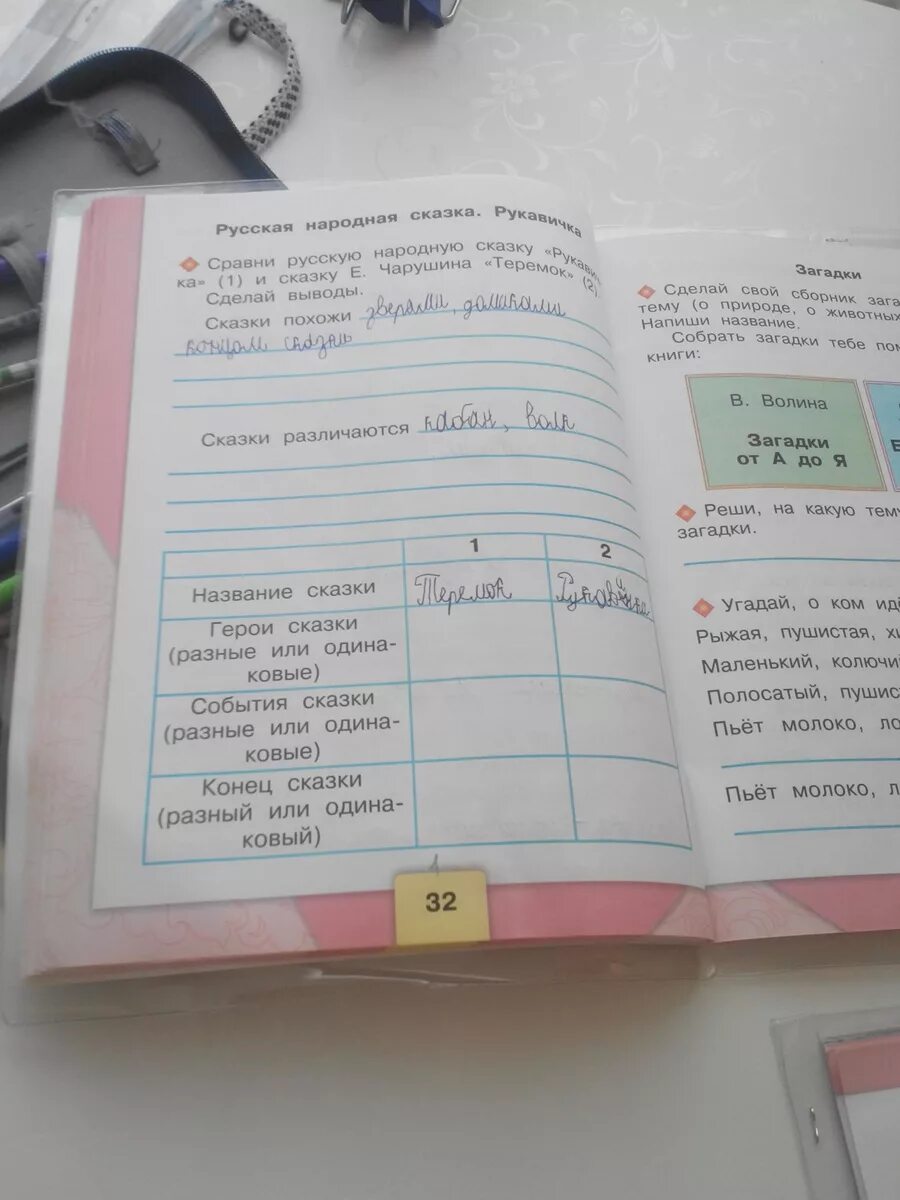 Русская народная сказка. Рукавичка
Сравни русскую народную сказку «Рукавич
ка» (1) и сказку Е. Чарушина «Теремок» (2)
Сделай выводы.
Сказки похожи зверями, домиками
концом сказки
Сказки различаются кабан, волк
1 2
Название сказки Теремок Рукавичка
Герои сказки
(разные или одина-
ковые)
События сказки
(разные или одина-
ковые)
Конец сказки
(разный или одина-
ковый)
32
Загадки
Сделай свой сборник зага
тему (о природе, о животных
Напиши название.
Собрать загадки тебе пом
книги:
В. Волина
Загадки
от А до Я
Реши, на какую тему
загадки.
Угадай, о ком идё
Рыжая, пушистая, хи
Маленький, колючий
Полосатый, пушис
Пьёт молоко, ло
Пьёт молоко, л